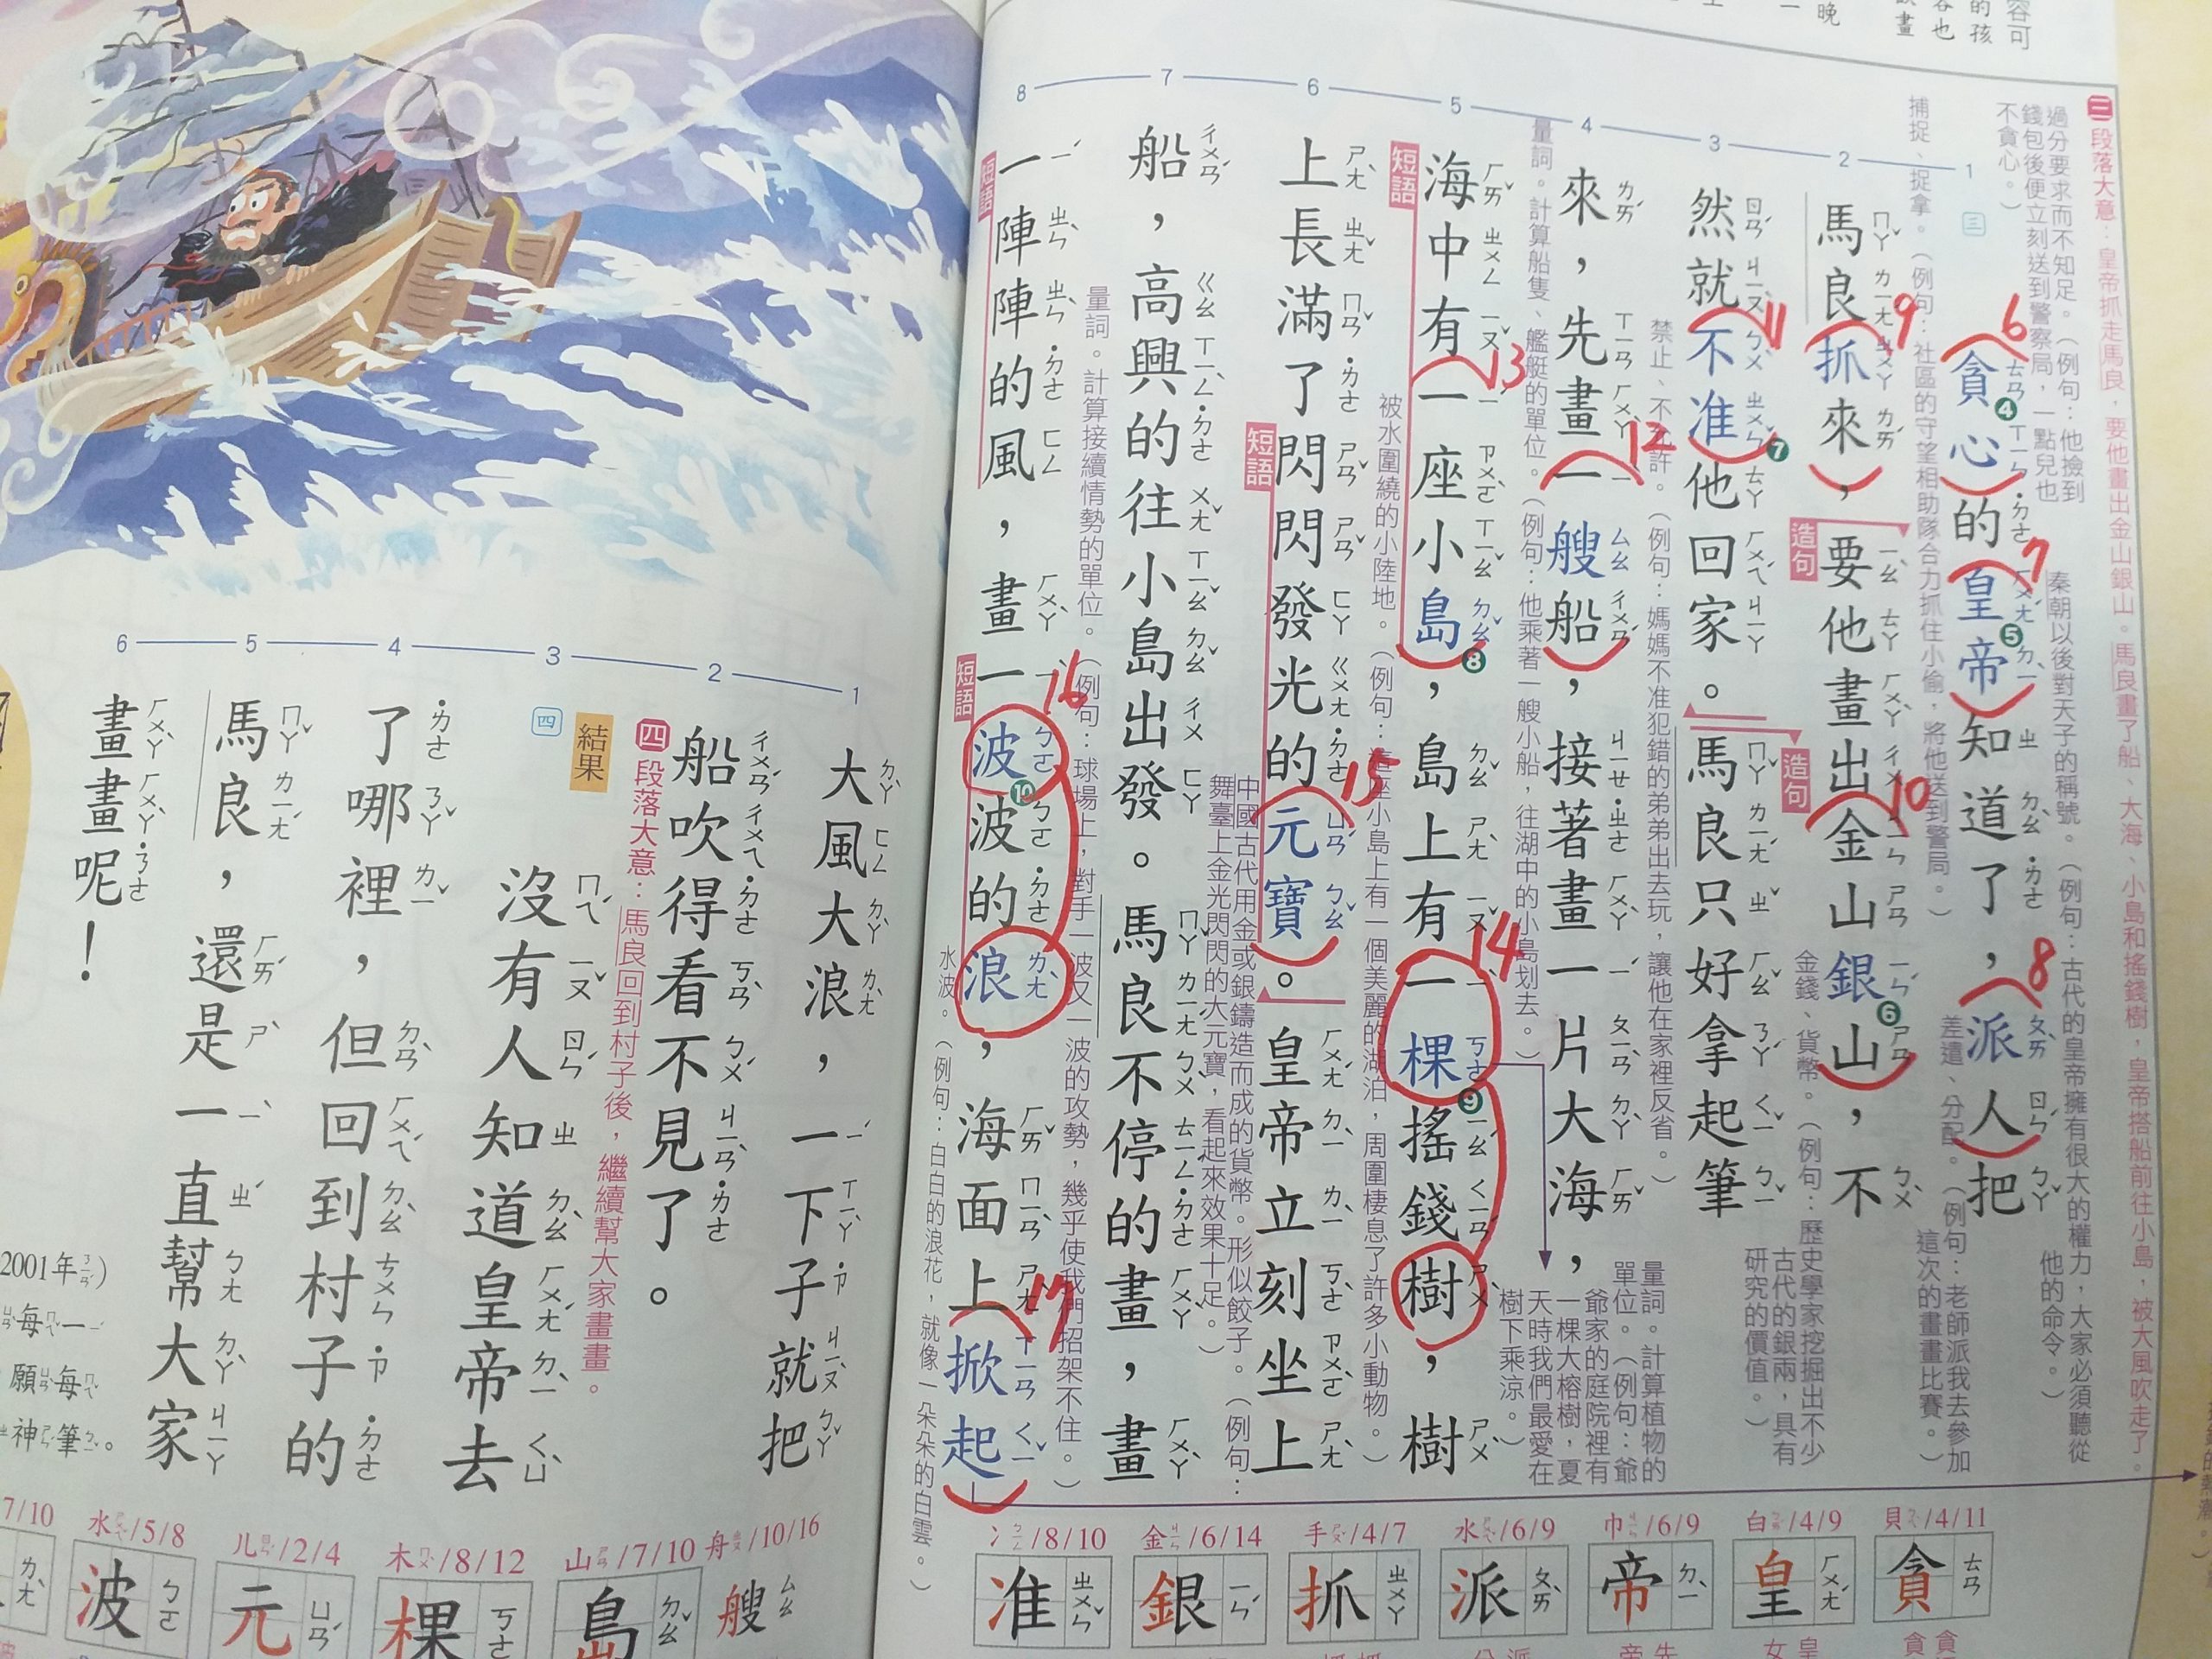 容可
的孩
容也
畫
晚
一
三 段落大意：皇帝抓走馬良，要他畫出金山銀山。馬良畫了船、大海、小島和搖錢樹，皇帝搭船前往小島，被大風吹走了。
過分要求而不知足。（例句：他撿到
錢包後便立刻送到警察局，一點兒也
不貪心。）
秦朝以後對天子的稱號。（例句：古代的皇帝擁有很大的權力，大家必須聽從
他的命令。）
1 2 3 4 5 6 7 8
三
貪心的皇帝知道了，派人把
6 7 8
差遣、分配。（例句：老師派我去參加
這次的畫畫比賽。）
捕捉、捉拿。（例句：社區的守望相助隊合力抓住小偷，將他送到警局。）
馬良抓來，要他畫出金山銀山，不
9 10
造句
金錢、貨幣。（例句：歷史學家挖掘出不少
古代的銀兩，具有
研究的價值。）
然就不准他回家。馬良只好拿起筆
11
造句
禁止、不允許。（例句：媽媽不准犯錯的弟弟出去玩，讓他在家裡反省。）
來，先畫一艘船，接著畫一片大海，
12
量詞。計算船隻、艦艇的單位。（例句：他乘著一艘小船，往湖中的小島划去。）
量詞。計算植物的
單位。（例句：爺
爺家的庭院裡有
一棵大榕樹，夏
天時我們最愛在
樹下乘涼。）
短語
海中有一座小島，島上有一棵搖錢樹，樹
13 14
被水圍繞的小陸地。（例句：這座小島上有一個美麗的湖泊，周圍棲息了許多小動物。）
上長滿了閃閃發光的元寶。皇帝立刻坐上
15
短語
中國古代用金或銀鑄造而成的貨幣。形似餃子。（例句：
舞臺上金光閃閃的大元寶，看起來效果十足。）
船，高興的往小島出發。馬良不停的畫，畫
量詞。計算接續情勢的單位。（例句：球場上，對手一波又一波的攻勢，幾乎使我們招架不住。）
短語
一陣陣的風，畫一波波的浪，海面上掀起
16 17
短語
水波。（例句：白白的浪花，就像一朵朵的白雲。）
貝/4/11
貪 ㄊㄢ
白/4/9
皇 ㄏㄨㄤˊ
巾/6/9
帝 ㄉㄧˋ
水/6/9
派 ㄆㄞˋ
手/4/7
抓 ㄓㄨㄚ
金/6/14
銀 ㄧㄣˊ
冫/8/10
准 ㄓㄨㄣˇ
1 2 3 4 5 6
大風大浪，一下子就把
船吹得看不見了。
四 段落大意：馬良回到村子後，繼續幫大家畫畫。
結果
四
沒有人知道皇帝去
了哪裡，但回到村子的
馬良，還是一直幫大家
畫畫呢！
2001年）
每一
願每
神筆。
舟/10/16
艘 ㄙㄠ
山/7/10
島 ㄉㄠˇ
木/8/12
棵 ㄎㄜ
儿/2/4
元 ㄩㄢˊ
水/5/8
波 ㄅㄛ
7/10
ㄌㄤˋ